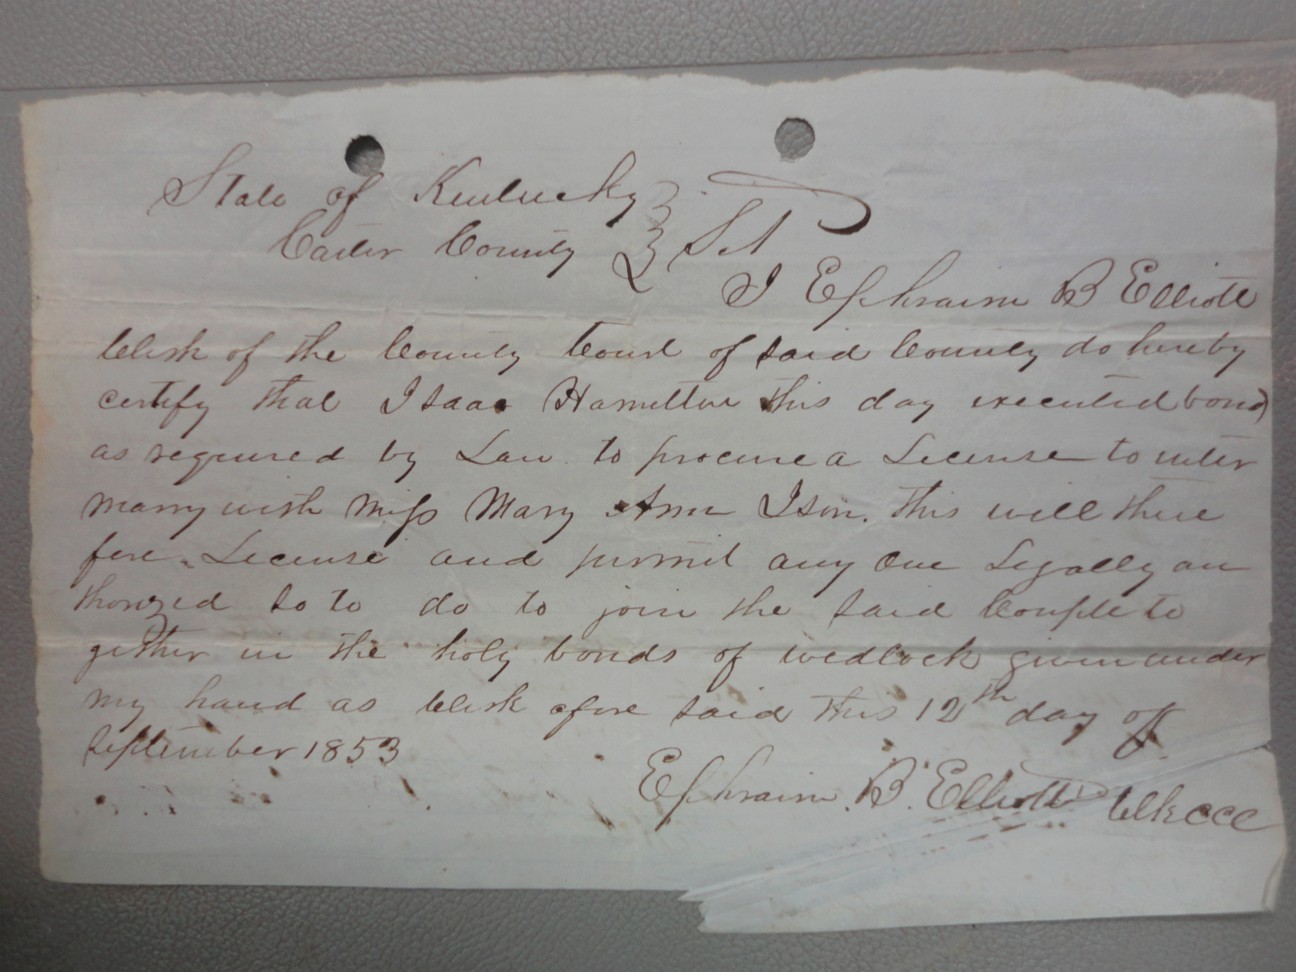 State of Kentucky
Carter County } Sct
I Ephraim B Elliott
Clerk of the County Court of said County do hereby
certify that Isaac Hamilton this day executed bond
as required by Law to procure a License to inter
marry with Miss Mary Ann Ison. This will there
fore License and permit any one Legally au
thorized so to do to join the said Couple to
gether in the holy bonds of wedlock given under
my hand as Clerk afore said this 12th day of
September 1853
Ephraim B. Elliott Clk CCC